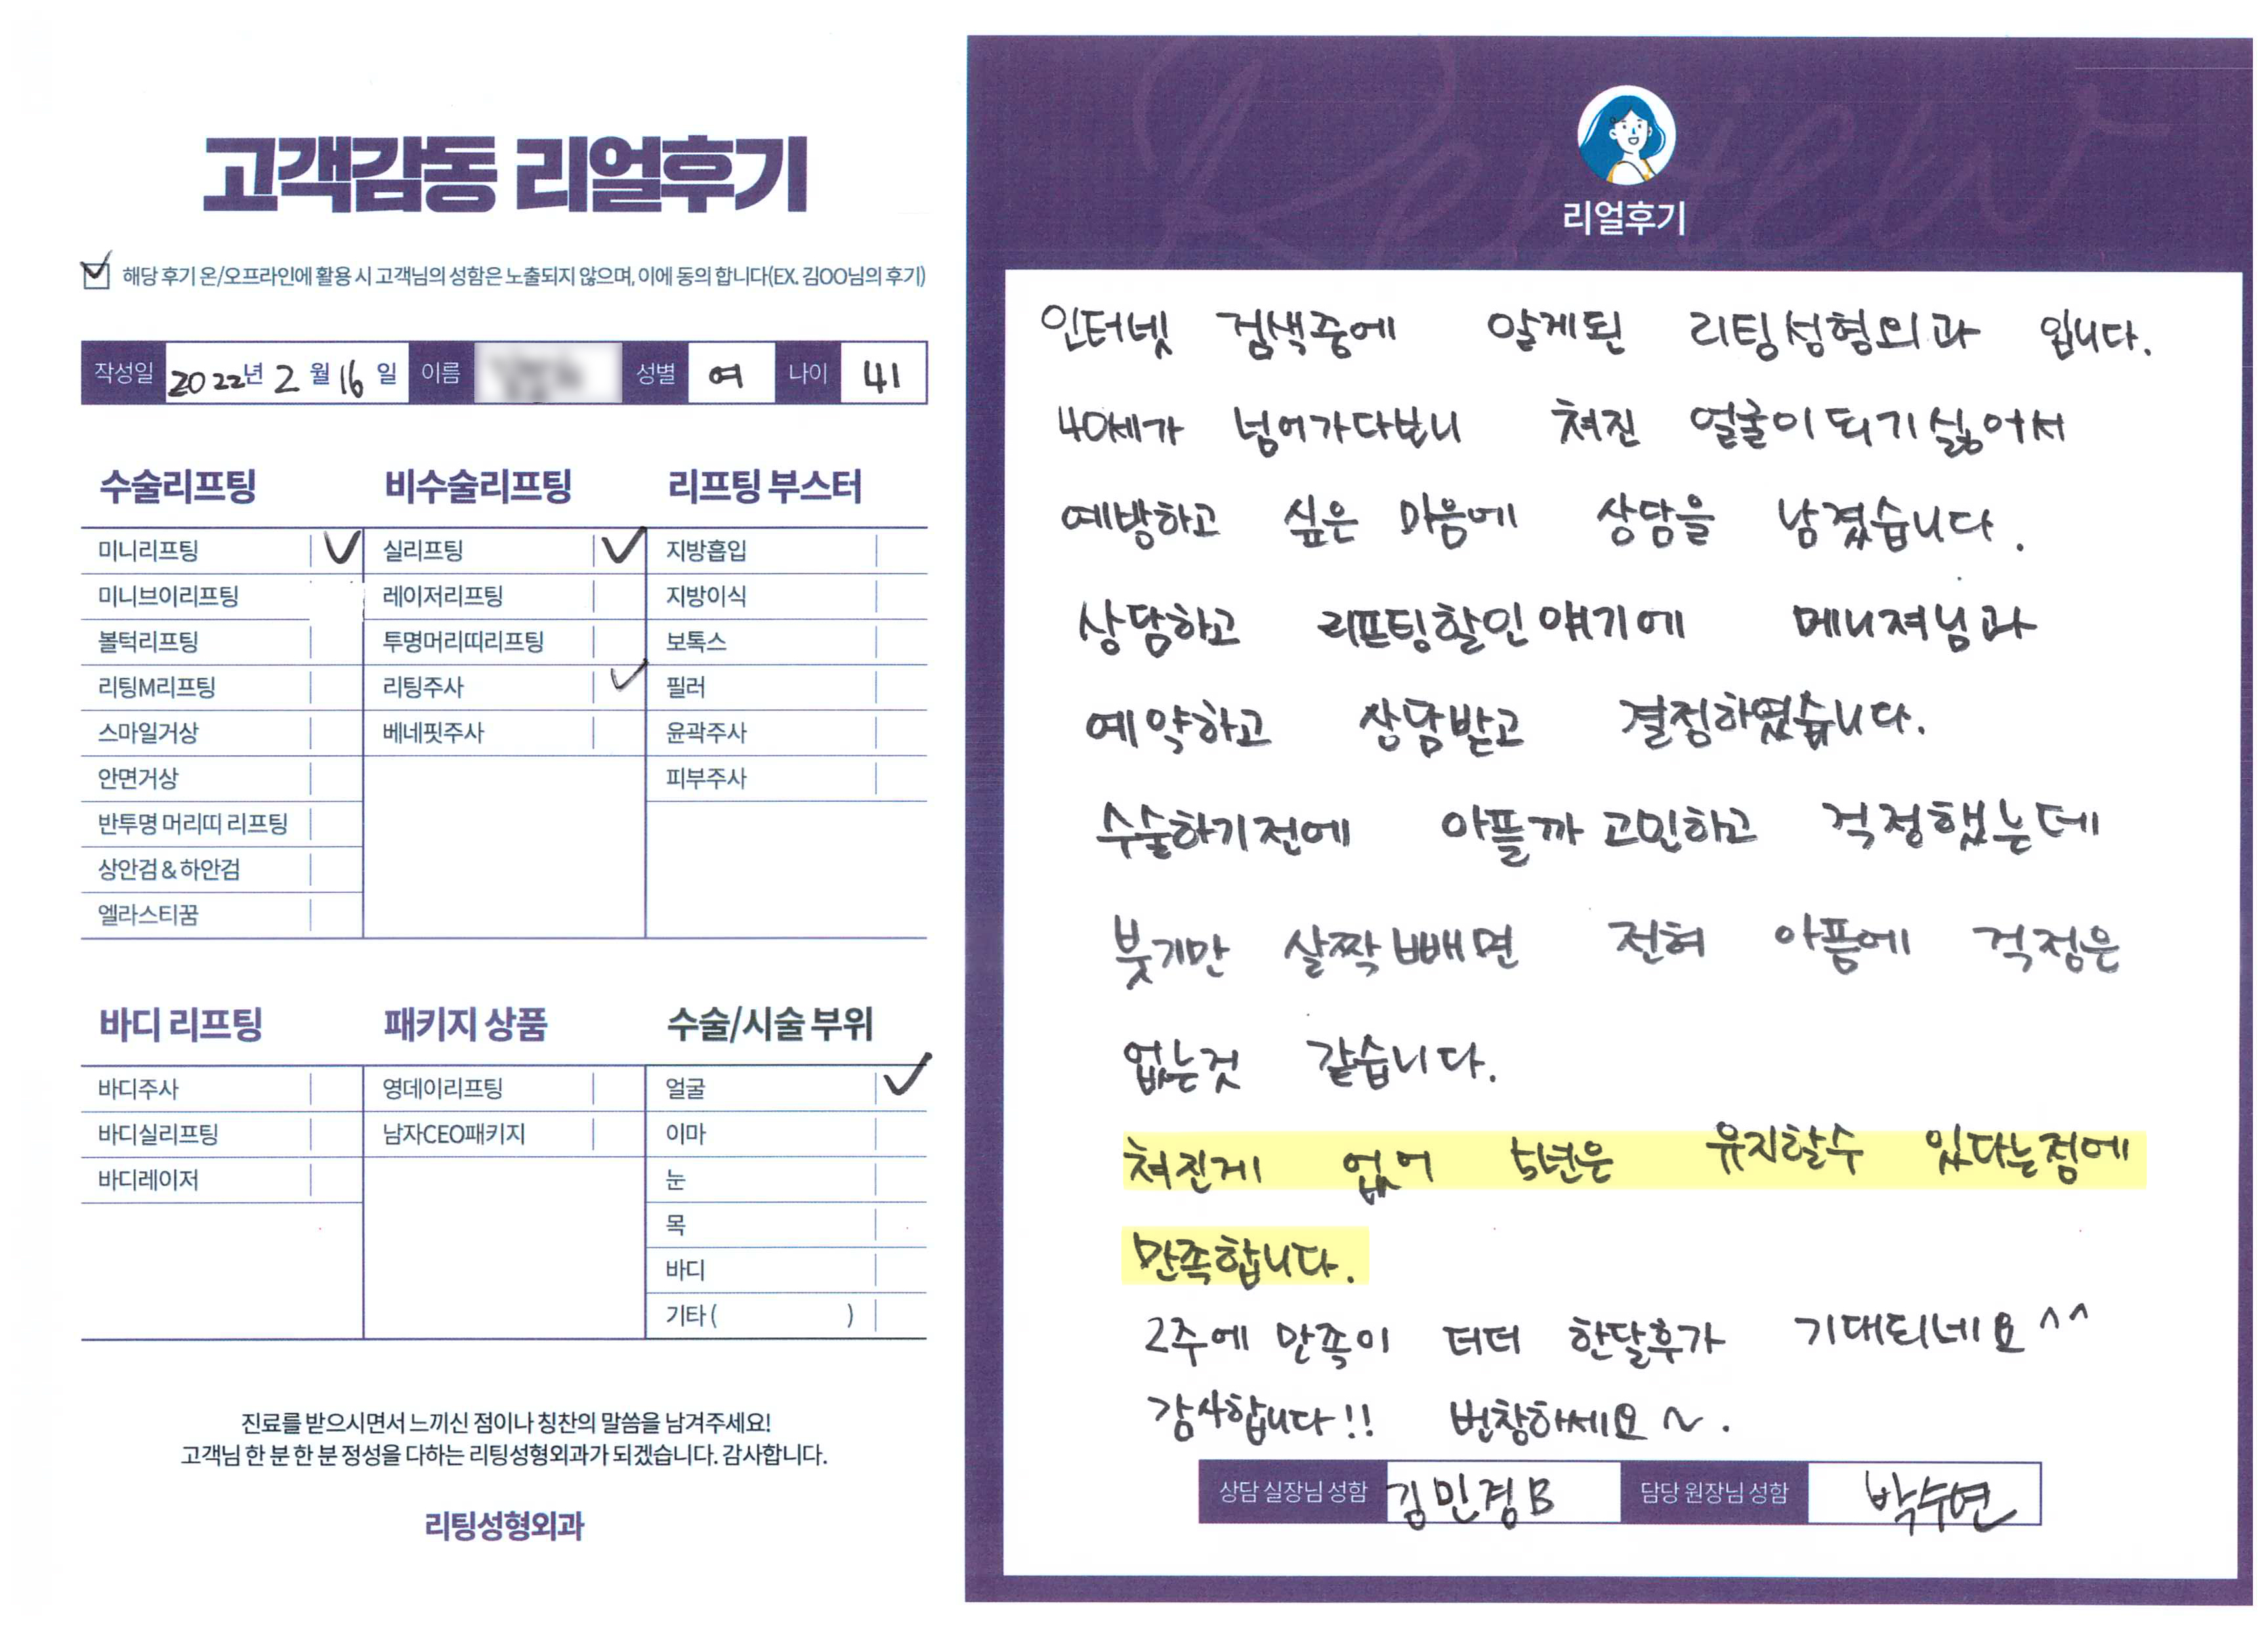 고객감동 리얼후기
해당 후기 온/오프라인에 활용 시 고객님의 성함은 노출되지 않으며, 이에 동의 합니다(EX. 김OO님의 후기)
작성일 2022년 2월 16일 이름 성별 여 나이 41
수술리프팅
미니리프팅 ✓
미니브이리프팅
볼턱리프팅
리팅M리프팅
스마일거상
안면거상
반투명 머리띠 리프팅
상안검 & 하안검
엘라스티꿈
비수술리프팅
실리프팅 ✓
레이저리프팅
투명머리띠리프팅
리팅주사 ✓
베네핏주사
리프팅 부스터
지방흡입
지방이식
보톡스
필러
윤곽주사
피부주사
바디 리프팅
바디주사
바디실리프팅
바디레이저
패키지 상품
영데이리프팅
남자CEO패키지
수술/시술 부위
얼굴 ✓
이마
눈
목
바디
기타 ( )
진료를 받으시면서 느끼신 점이나 칭찬의 말씀을 남겨주세요!
고객님 한 분 한 분 정성을 다하는 리팅성형외과가 되겠습니다. 감사합니다.
리팅성형외과
Review
리얼후기
인터넷 검색중에 알게된 리팅성형외과 입니다.
40세가 넘어가다보니 쳐진 얼굴이 되기 싫어서
예방하고 싶은 마음에 상담을 남겼습니다.
상담하고 리프팅할인 얘기에 메니져님과
예약하고 상담받고 결정하였습니다.
수술하기전에 아플까 고민하고 걱정했는데
붓기만 살짝 빼면 전혀 아픔에 걱정은
없는것 같습니다.
쳐진게 없어 5년은 유지할수 있다는점에
만족합니다.
2주에 만족이 더더 한달후가 기대되네요 ^^
감사합니다!! 번창하세요~.
상담 실장님 성함 김민경B 담당 원장님 성함 박수연